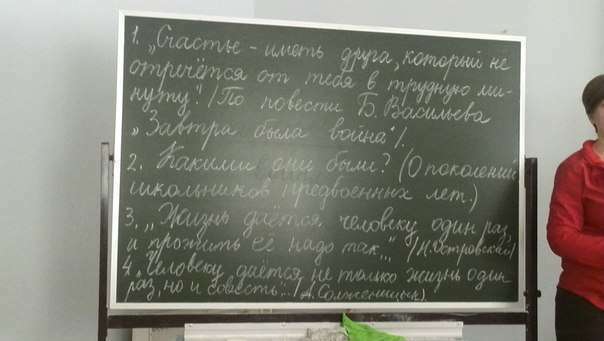 1. „Счастье – иметь друга, который не
отречётся от тебя в трудную ми-
нуту". /По повести Б. Васильева
„Завтра была война"/.
2. Какими они были? (О поколении
школьников предвоенных лет.)
3. „Жизнь даётся человеку один раз
и прожить её надо так..." /Н. Островский/
4. „Человеку даётся не только жизнь один
раз, но и совесть..." /А. Солженицын).